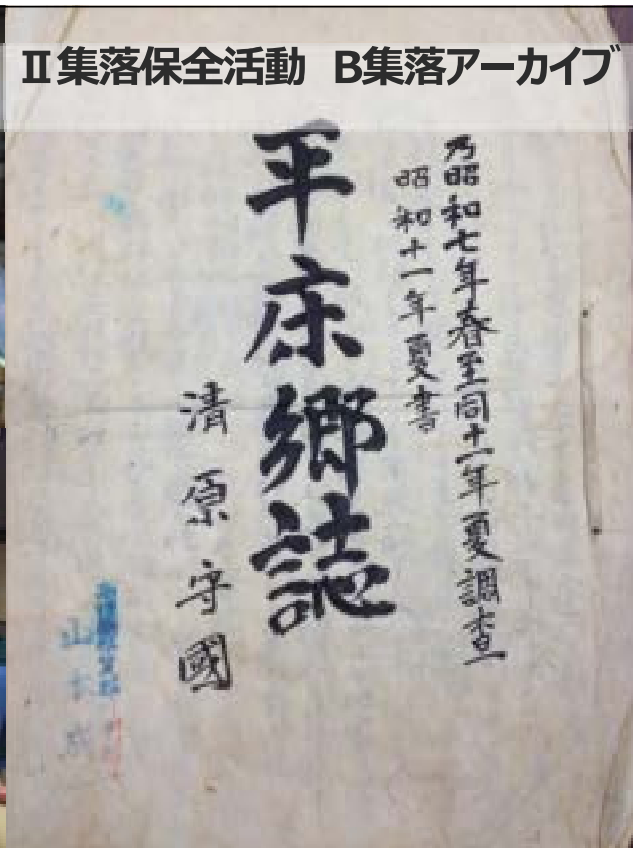 Ⅱ集落保全活動 B集落アーカイブ
乃昭和七年春至同十一年夏調査
昭和十一年夏書
平床郷誌
清原守國